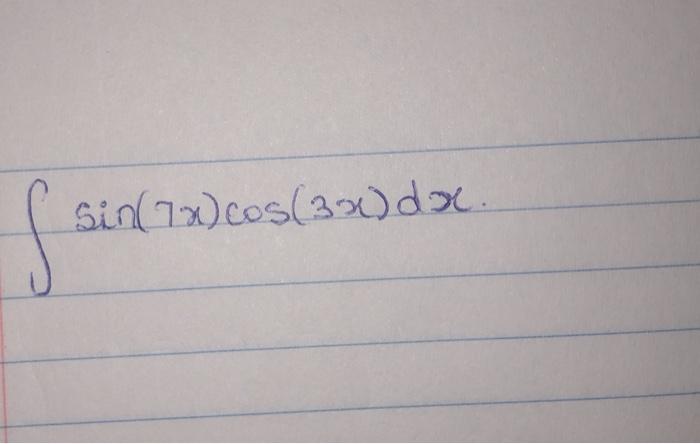 ∫ sin(7x)cos(3x)dx.